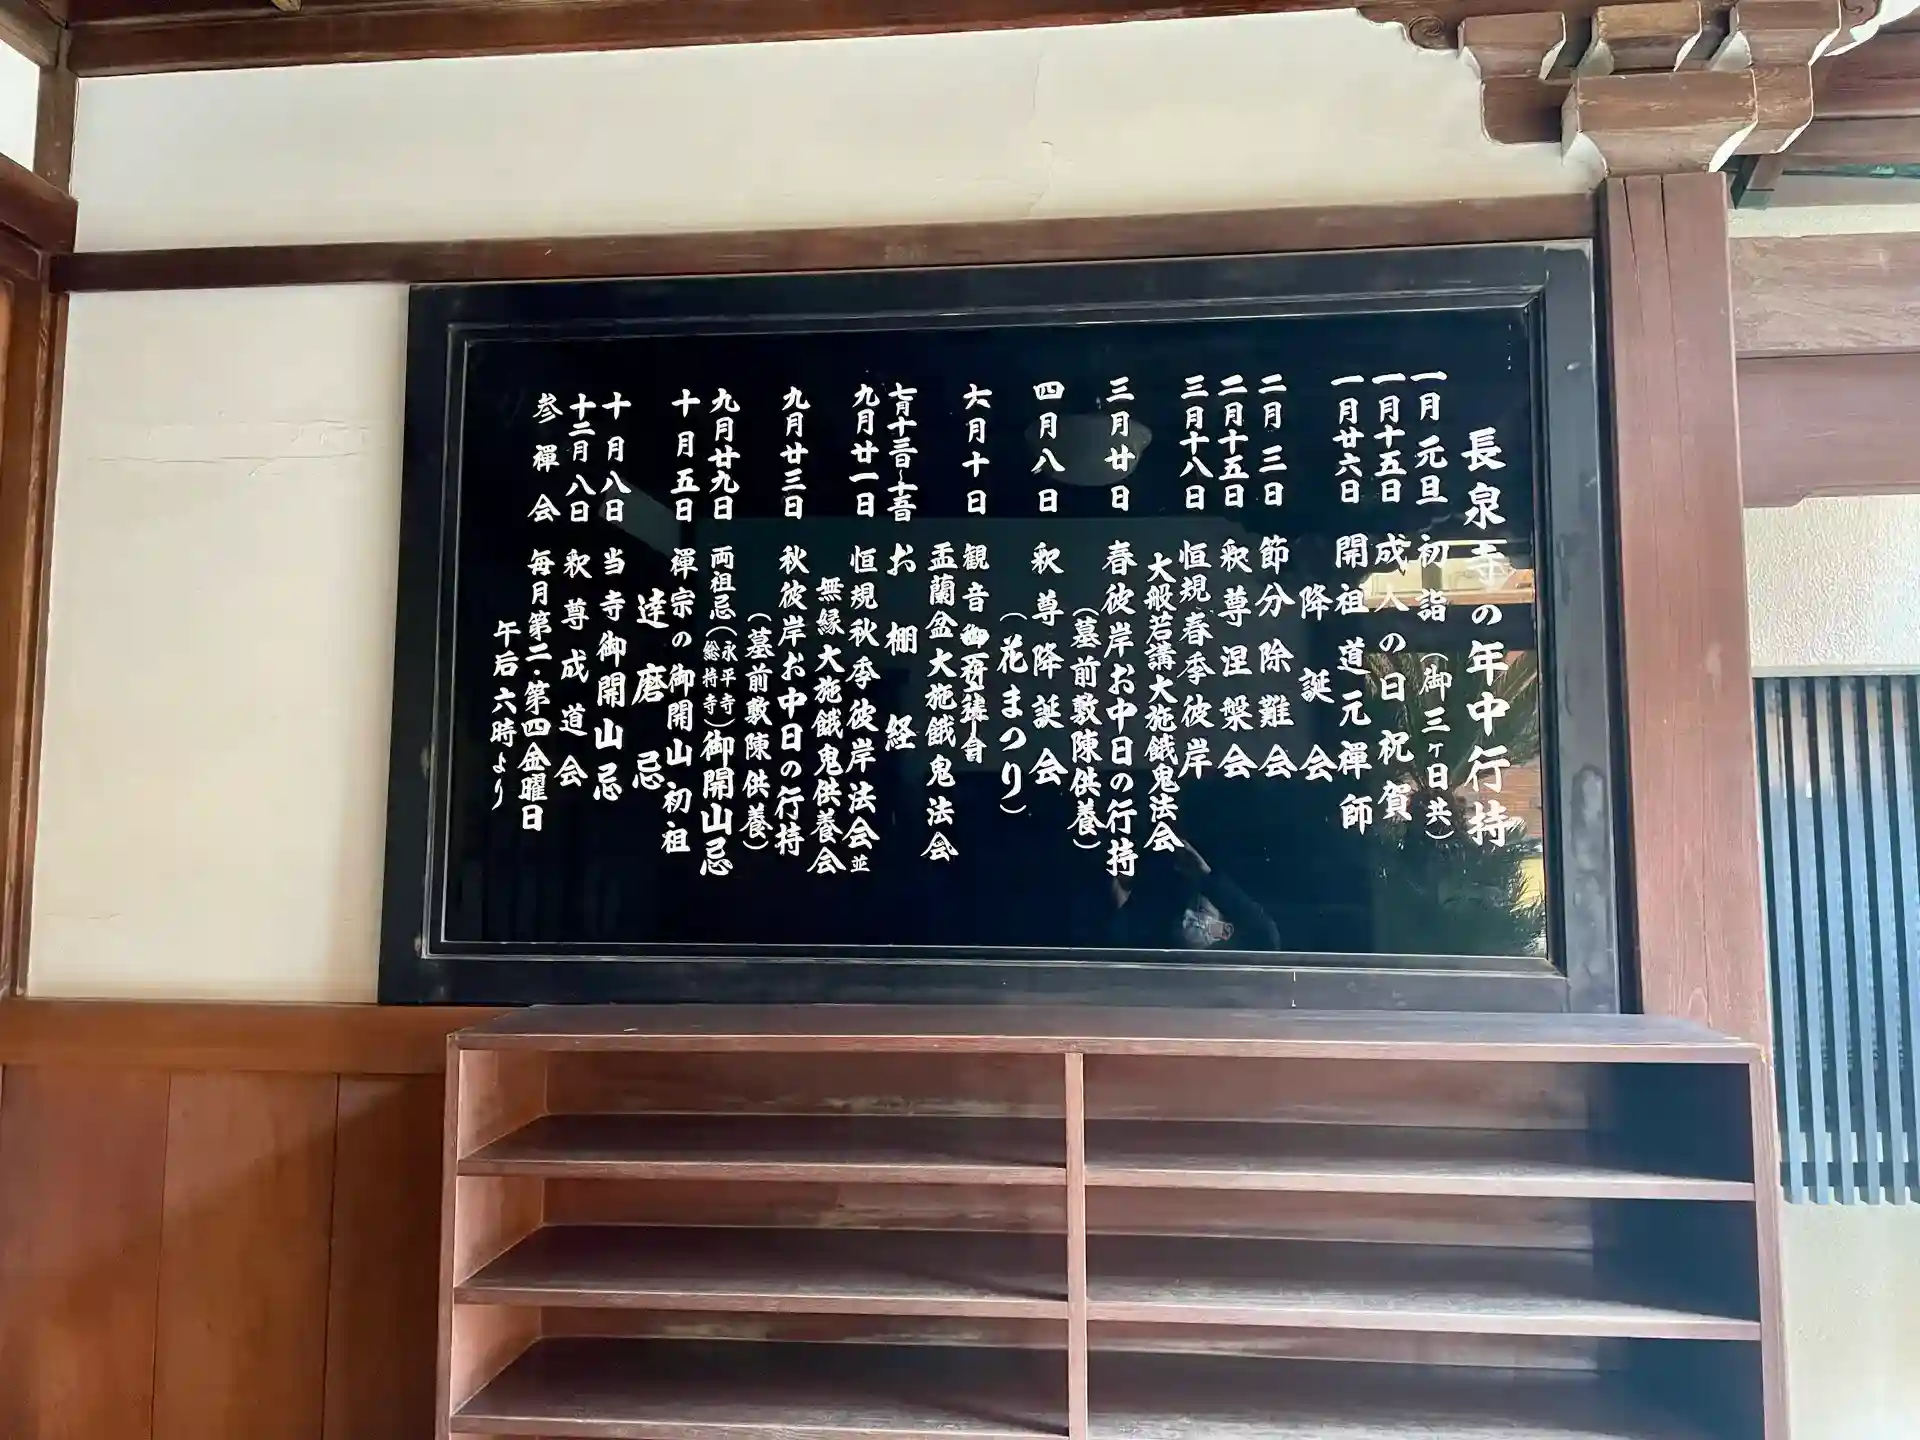 長泉寺の年中行持
一月元旦 初詣（御三ヶ日共）
一月十五日 成人の日祝賀
一月廿六日 開祖道元禅師
降誕会
二月三日 節分除難会
二月十五日 釈尊涅槃会
三月十八日 恒規春季彼岸
大般若講大施餓鬼法会
三月廿日 春彼岸お中日の行持
（墓前敷陳供養）
四月八日 釈尊降誕会
（花まつり）
六月十日 観音
盂蘭盆大施餓鬼法会
七月十三日〜十五日 お棚経
九月廿一日 恒規秋季彼岸法会並
無縁大施餓鬼供養会
九月廿三日 秋彼岸お中日の行持
（墓前敷陳供養）
九月廿九日 両祖忌（永平寺 総持寺）御開山忌
十月五日 禅宗の御開山初祖
達磨忌
十月八日 当寺御開山忌
十二月八日 釈尊成道会
参禅会 毎月第二・第四金曜日
午后六時より